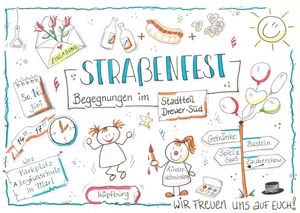 EINLADUNG
STRAßENFEST
Begegnungen im
Stadtteil
Drewer-Süd
So. 16.
Juni
14 - 17
WO?
Parkplatz
Aloysiusschule
in Marl
Hüpfburg
Kinder-
schminken
Getränke
Basteln
Spiel &
Spaß
Zaubershow
WIR FREUEN UNS AUF EUCH!